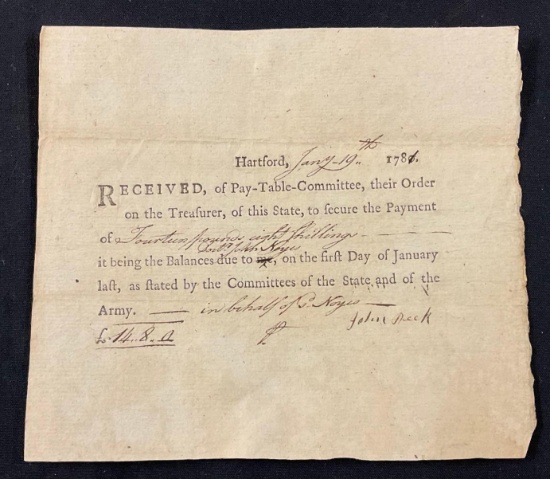 Hartford, Jany 19th 1781.
RECEIVED, of Pay-Table-Committee, their Order
on the Treasurer, of this State, to secure the Payment
of Fourteen pounds eight Shillings
Noyes
it being the Balances due to me, on the first Day of January
last, as stated by the Committees of the State and of the
Army. in behalf of S. Noyes
£ 14.. 8.. 0
John Deck